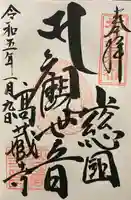 奉拝
上総国
札観世音
高蔵寺
令和五年一月九日